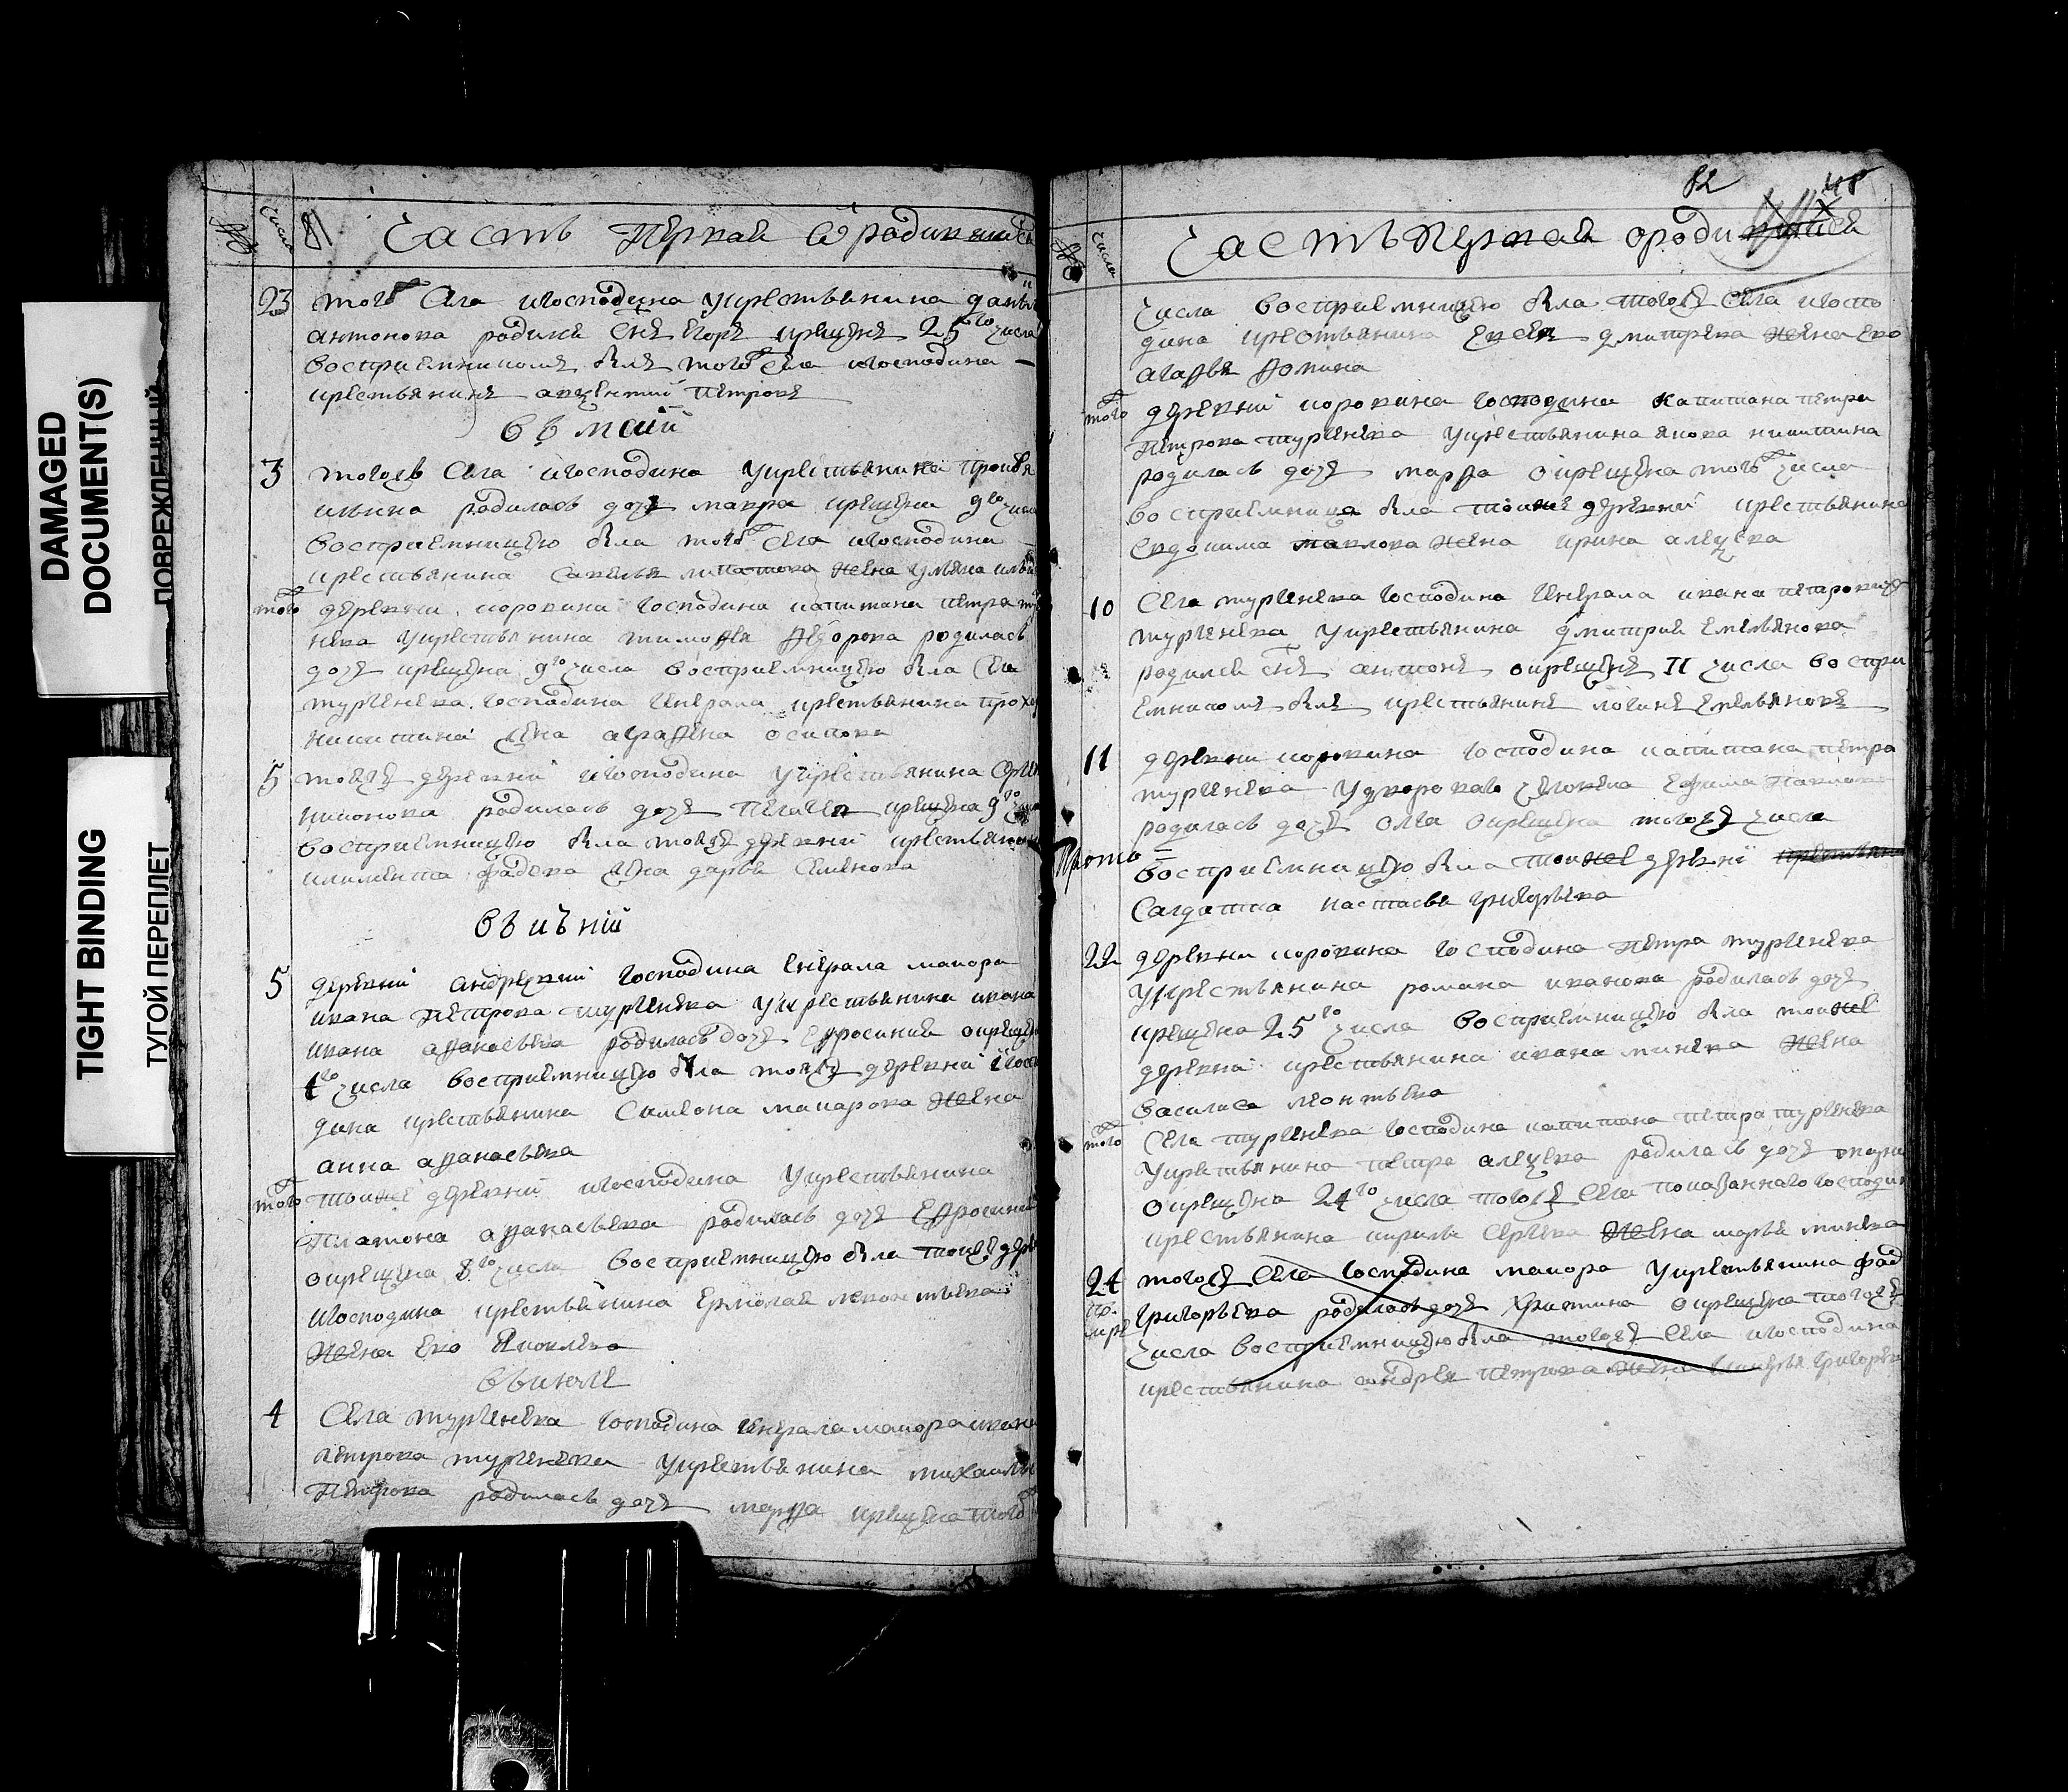 DAMAGED
DOCUMENT(S)
ПОВРЕЖДЕННЫЙ
TIGHT BINDING
ТУГОЙ ПЕРЕПЛЕТ
№ число 81 Часть первая о родившихся
23 тогож села и господина у крестьянина данил
антонова родился сынъ егоръ крещенъ 25го числа
восприемникомъ былъ тогож села и господина
крестьянинъ авксентий петровъ
въ маии
3 тогожъ села и господина у крестьянина
ильина родилась дочь мавра крещена 9го числа
восприемницею была тогож села и господина
крестьянина савелья жена ульяна
того деревни коровина господина капитана петра
нева у крестьянина тимофея федорова родилась
дочь крещена 9го числа восприемницею была села
тургенева господина генерала крестьянина
никитина жена аграфена осипова
5 тояже деревни и господина у крестьянина
родилась дочь пелагея крещена 9го
восприемницею была тояже деревни
климента фадеева жена дарья семенова
въ июнии
5 деревни андреевки господина генерала маиора
ивана петрова тургенева у крестьянина ивана
ивана афанасьева родилась дочь ефросиния окрещена
числа восприемницею была тояже деревни и госпо
дина крестьянина симеона макарова жена
анна афанасьева
того тоижеж деревни и господина у крестьянина
платона афанасьева родилась дочь ефросиния
окрещена 8го числа восприемницею была тоиже дере
и господина крестьянина ермолая леонтьева
жена ево яковлева
въ июле
4 села тургенева господина генерала маиора ивана
петрова тургенева у крестьянина михаила
петрова родилась дочь марфа крещена тогож
82 48
№ числа Часть первая о родившихся
числа восприемницею была тогоже села и госпо
дина крестьянина евсея дмитрева жена ево
агафья фомина
того деревни коровина господина капитана петра
петрова тургенева у крестьянина якова никитина
родилась дочь марфа окрещена тогож числа
восприемница была тоиже деревни крестьянина
евдокима павлова жена ирина алексева
10 села тургенева господина генерала ивана петровича
тургенева у крестьянина дмитрия емельянова
родился сынъ антонъ окрещенъ 11 числа воспри
емникомъ былъ крестьянинъ логинъ емельяновъ
11 деревни коровина господина капитана петра
тургенева у дворовав человека ефима павлова
родилась дочь олга окрещена тогоже числа
восприемницею была тоиже деревни
салдатка настасья григорьева
22 деревни коровина господина петра тургенева
у крестьянина романа иванова родилась дочь
крещена 25го числа восприемницею была тоиже
деревни крестьянина ивана минева жена
василиса леонтьева
того села тургенева господина капитана петра тургенева
у крестьянина петра алексева родилась дочь
окрещена 24го числа тогоже села показаннаго господи
крестьянина кирила сергева жена марья минева
24 тогоже села господина маиора у крестьянина фад
григорьева родилась дочь христина окрещена тогоже
числа восприемницею была тогоже села и господина
крестьянина андрея петрова жена